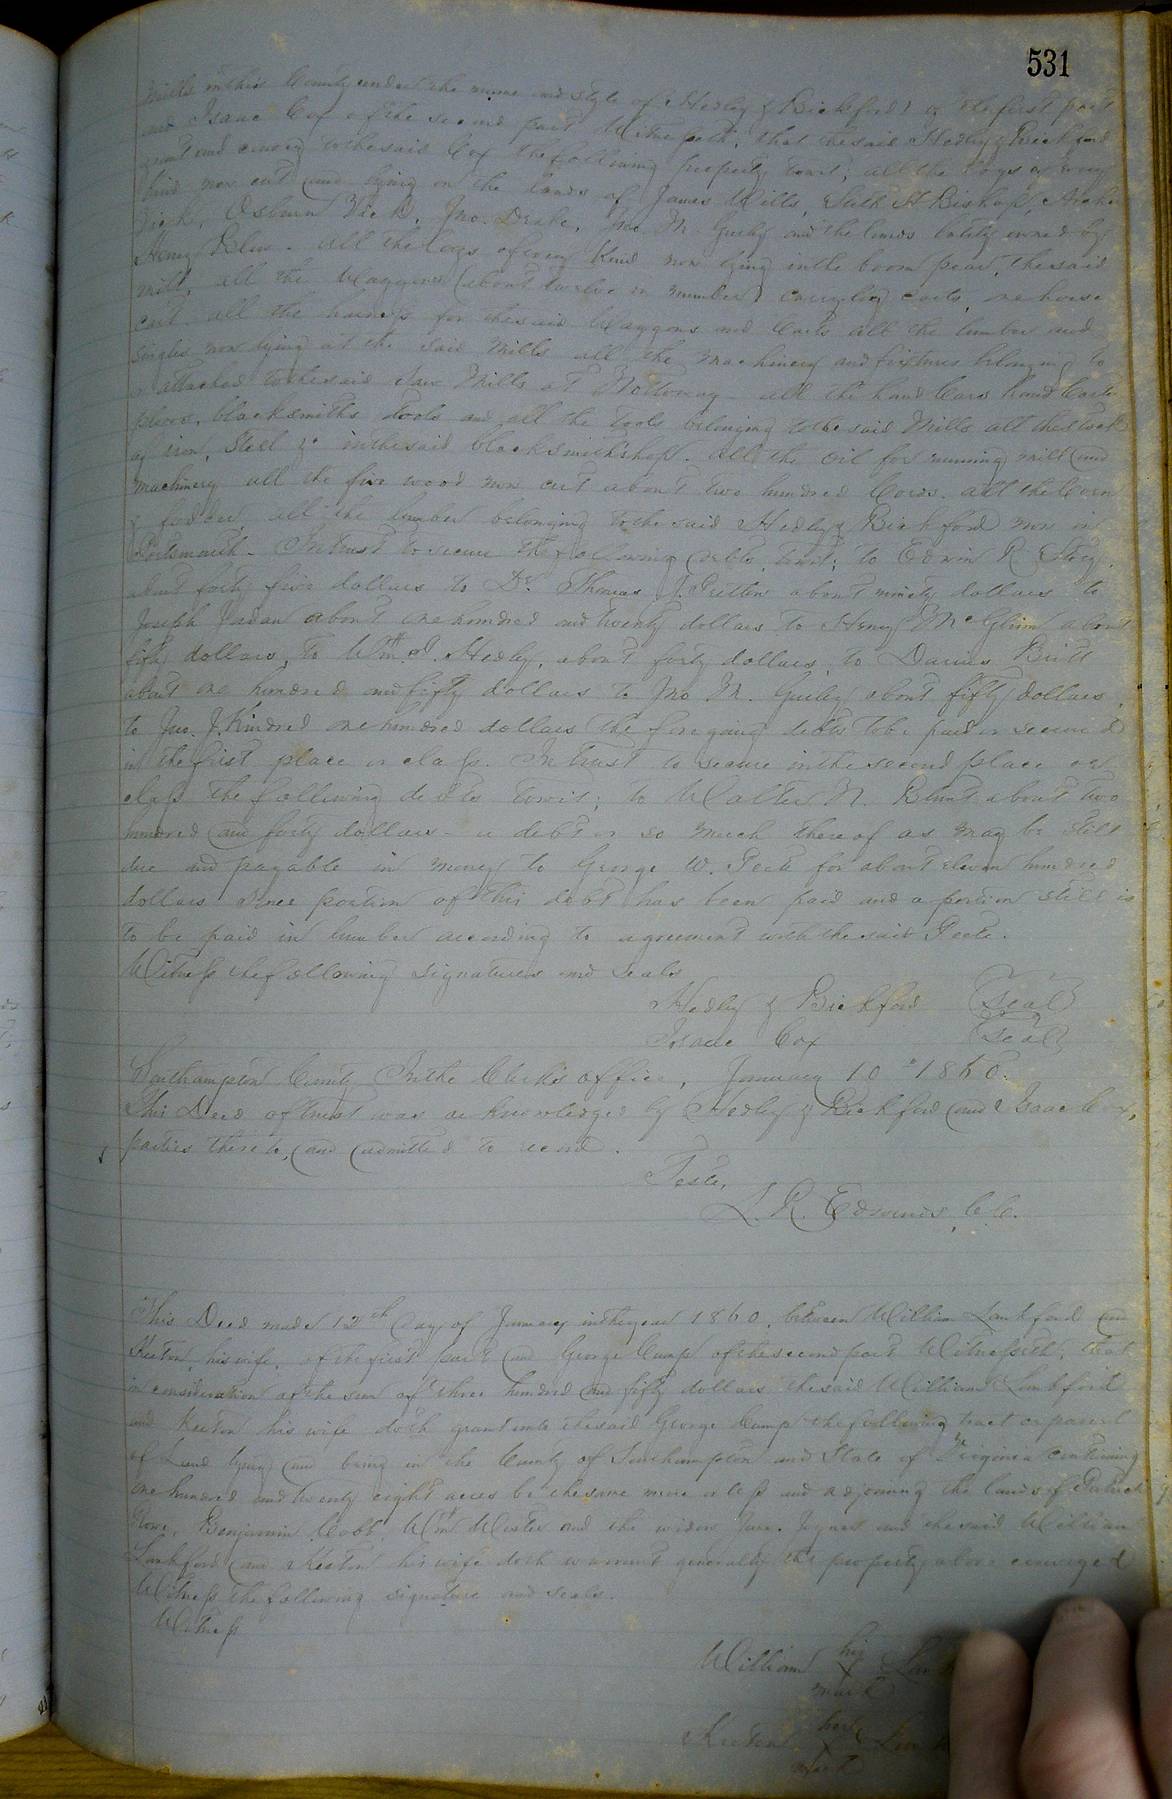 531
Mills in this County under the name and style of Hedley & Bickford) of the first part
and Isaac Cox of the second part Witnesseth, that the said Hedley & Bickford
grant and convey to the said Cox the following property towit; all the logs of every
kind now cut and lying on the lands of James Wills, Seth H Bishop,
Vick, Osburn Vick, Jno. Drake, Jno. M. Gurley and the lands lately owned by
Henry Blow. All the logs of every kind now lying in the boom pour, the said
mill, all the Waggons (about twelve in number) carrylog carts, one horse
cart. all the harness for the said Waggons and Carts all the lumber and
Singles now lying at the said Mills all the machinery and fixtures belonging to
or attached to the said Saw Mills at Nottoway - all the hand Cars hand Carts
plows, blacksmiths tools and all the tools belonging to the said Mills all the stock
of iron, Steel &c in the said blacksmith shop. all the oil for running mill and
machinery all the fire wood now cut about two hundred Cords. all the Corn
& fodder, all the lumber belonging to the said Hedley & Bickford now in
Portsmouth - In trust to secure the following debts, towit; to Edwin R
about forty five dollars to Dr. Thomas J. Pretlow about ninety dollars to
Joseph about one hundred and twenty dollars to Henry about
fifty dollars, to Wm. J. Hedley, about forty dollars, to Darius Britt
about one hundred and fifty dollars to Jno. M. Gurley about fifty dollars,
to Jno. J. Kindred one hundred dollars the foregoing debts to be paid or secured
in the first place or class. In trust to secure in the second place or
class the following debts towit; to Walter N. Blunt about two
hundred and forty dollars - a debt or so much thereof as may be still
due and payable in money to George W. Peete for about eleven hundred
dollars since portion of this debt has been paid and a portion still is
to be paid in lumber according to agreement with the said Peete.
Witness the following signatures and seals
Hedley & Bickford (Seal)
Isaac Cox (Seal)
Southampton County In the Clerk's office, January 10th 1860.
This Deed of trust was acknowledged by Hedley & Bickford and Isaac Cox,
parties thereto, and admitted to record.
Teste,
L. R. Edwards, C.C.
This Deed made 12th day of January in the year 1860, between William Lankford and
Keeton, his wife, of the first part and George Camp of the second part Witnesseth, that
in consideration of the sum of three hundred and fifty dollars the said William Lankford
and Keeton his wife doth grant unto the said George Camp the following tract or parcel
of Land lying and being in the County of Southampton and State of Virginia containing
one hundred and twenty eight acres be the same more or less and adjoining the lands of Patrick
Benjamin Cobb, Wm and the widow Jane Joyner and the said William
Lankford and Keeton his wife doth warrant generally the property above conveyed
Witness the following signature and seals.
Witness
William his X mark
Keeton her X mark